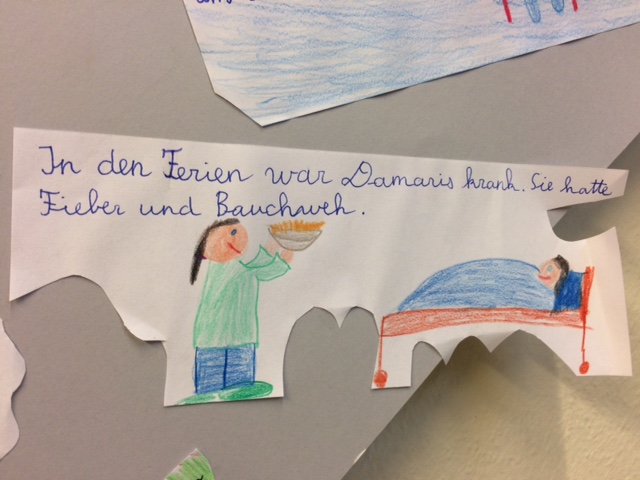 In den Ferien war Damaris krank. Sie hatte
Fieber und Bauchweh.